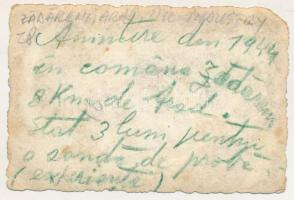 ZADARENI, ARAD OIL INDUSTRY
Amintire din 1944
în comuna Zădăreni
8 Km de Arad.
stat 3 luni pentru
o sondă de probă.
(experiență)